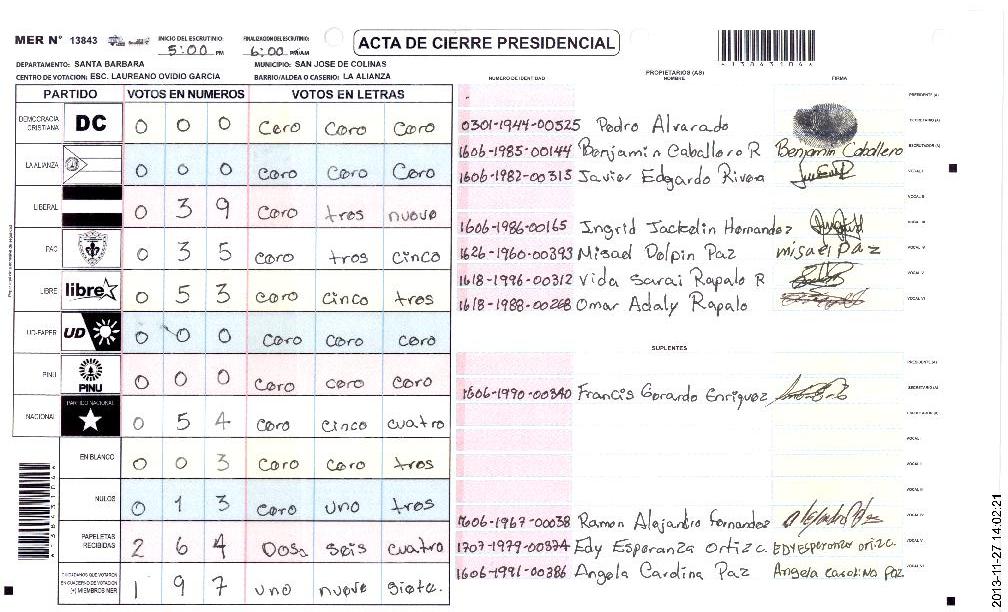 MER N° 13843 INICIO DEL ESCRUTINIO: 5:00 PM FINALIZACION DEL ESCRUTINIO: 6:00 PM/AM
ACTA DE CIERRE PRESIDENCIAL
DEPARTAMENTO: SANTA BARBARA MUNICIPIO: SAN JOSE DE COLINAS
CENTRO DE VOTACION: ESC. LAUREANO OVIDIO GARCIA BARRIO/ALDEA O CASERIO: LA ALIANZA
PARTIDO VOTOS EN NUMEROS VOTOS EN LETRAS
DEMOCRACIA CRISTIANA DC 0 0 0 Cero Cero Cero
LA ALIANZA 0 0 0 Cero Cero Cero
LIBERAL 0 3 9 Cero tres nueve
PAC 0 3 5 cero tres cinco
LIBRE libre 0 5 3 cero cinco tres
UD-FAPER UD 0 0 0 cero cero cero
PINU PINU 0 0 0 Cero cero cero
NACIONAL PARTIDO NACIONAL 0 5 4 Cero cinco cuatro
EN BLANCO 0 0 3 Cero Cero tres
NULOS 0 1 3 cero uno tres
PAPELETAS RECIBIDAS 2 6 4 Dos seis cuatro
CIUDADANOS QUE VOTARON EN CUADERNO DE VOTACION (+) MIEMBROS MER 1 9 7 uno nueve siete.
PROPIETARIOS (AS)
NUMERO DE IDENTIDAD NOMBRE FIRMA
PRESIDENTE (A)
0301-1944-00525 Pedro Alvarado SECRETARIO (A)
1606-1985-00144 Benjamin Caballero R Benjamin Caballero ESCRUTADOR (A)
1606-1982-00315 Javier Edgardo Rivera VOCAL I
VOCAL II
1606-1986-00165 Ingrid Jackelin Hernandez VOCAL III
1626-1960-00393 Misael Dolpin Paz misael paz VOCAL IV
1618-1996-00312 Vida Sarai Rapalo R VOCAL V
1618-1988-00268 Omar Adaly Rapalo VOCAL VI
SUPLENTES
PRESIDENTE (A)
1606-1990-00340 Francis Gerardo Enriquez SECRETARIO (A)
ESCRUTADOR (A)
VOCAL I
VOCAL II
VOCAL III
1606-1967-00038 Ramon Alejandro Fernandez VOCAL IV
1707-1979-00374 Edy Esperanza Ortiz c. EDY Esperanza ortiz c. VOCAL V
1606-1991-00386 Angela Carolina Paz Angela carolina paz VOCAL VI
2013-11-27 14:02:21